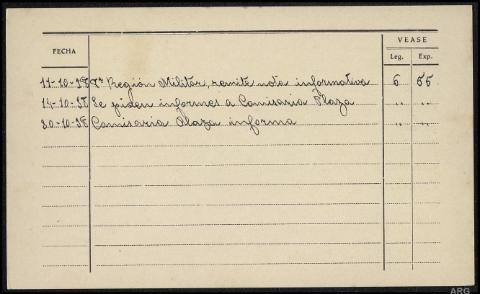 VEASE
FECHA Leg. Exp.
11-10-38 Región Militar, remite nota informativa 6 55
14-10-38 Se piden informes a Comisaria Plaza " "
20-10-38 Comisaria Plaza informa " "
ARG